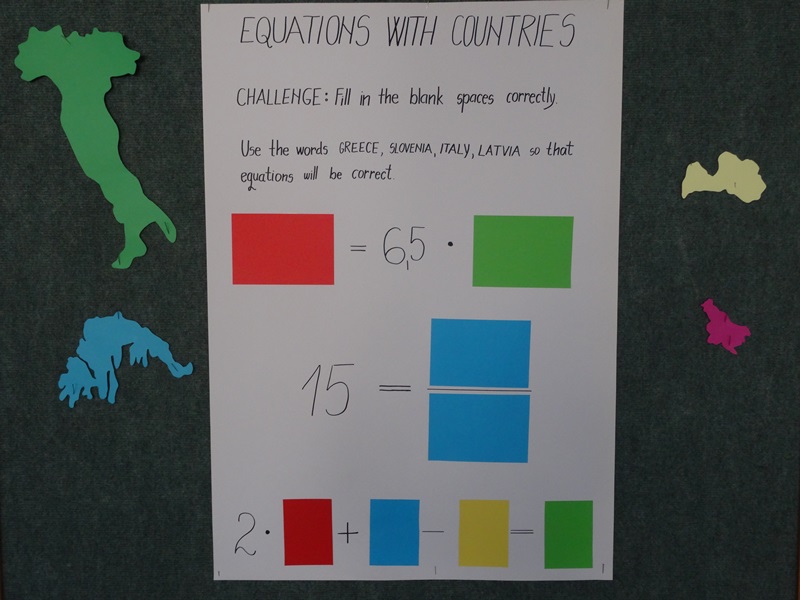 EQUATIONS WITH COUNTRIES
CHALLENGE: Fill in the blank spaces correctly.
Use the words GREECE, SLOVENIA, ITALY, LATVIA so that
equations will be correct.
= 6,5 ·
15 =
2 · + − =